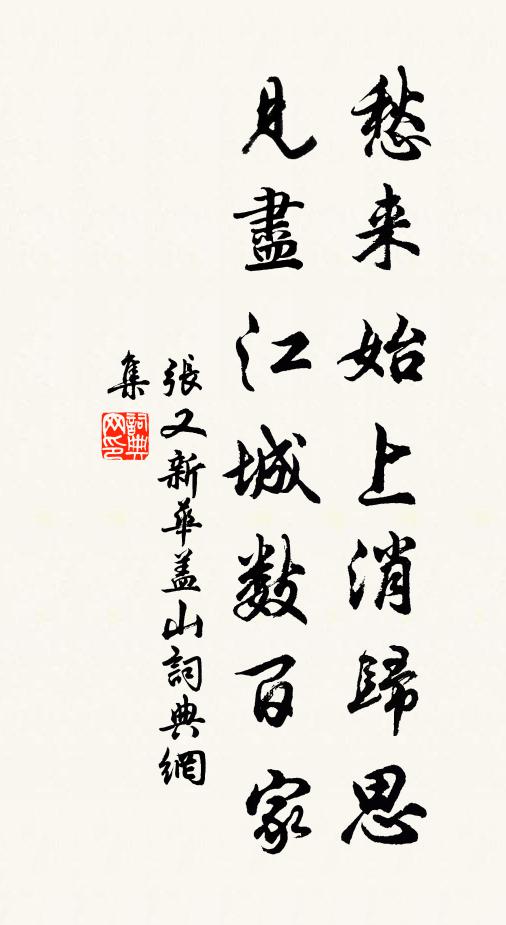 愁来始上消歸思
見盡江城数百家
張又新華蓋山詞典網
集
詞典网印